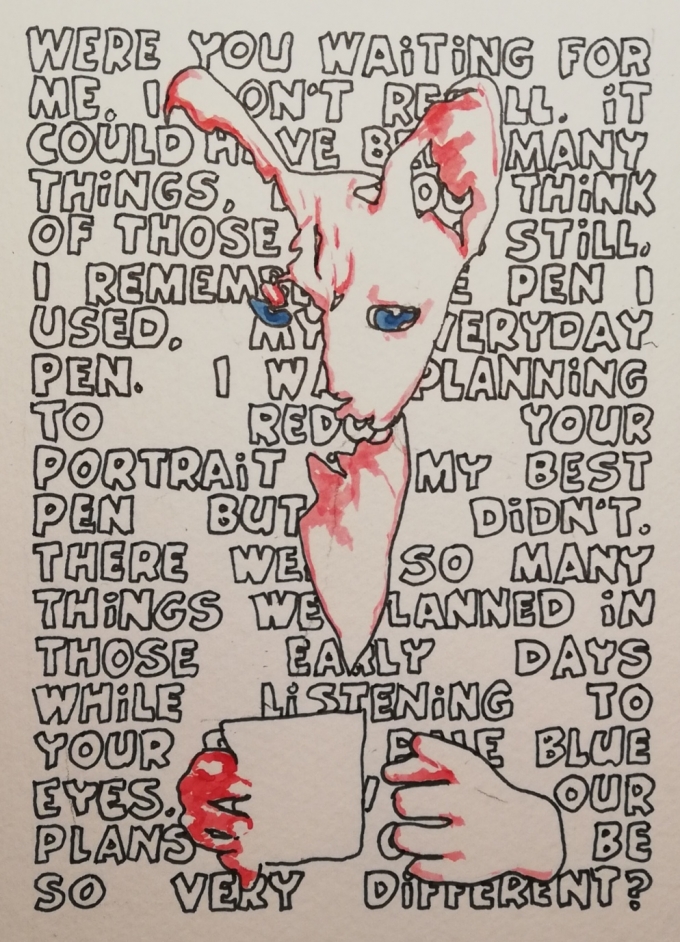 WERE YOU WAiTiNG FOR
ME. I DON'T RECALL. iT
COULD HAVE BEEN MANY
THiNGS, I DO THiNK
OF THOSE STiLL.
I REMEMBER THE PEN I
USED. MY EVERYDAY
PEN. I WAS PLANNiNG
TO REDO YOUR
PORTRAiT MY BEST
PEN BUT DiDN'T.
THERE WERE SO MANY
THiNGS WE PLANNED iN
THOSE EARLY DAYS
WHiLE LiSTENiNG TO
YOUR BLUE
EYES. OUR
PLANS BE
SO VERY DiFFERENT?